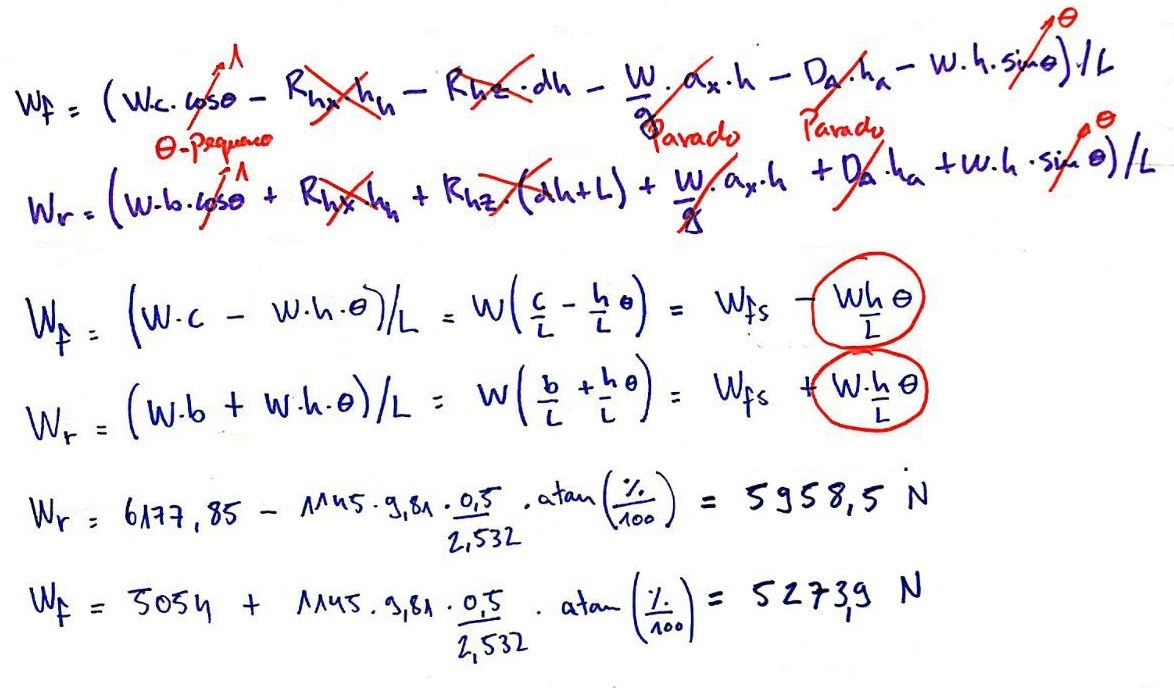 Wf = (W.c. cosθ - Rhx hh - Rhz . dh - W/g . ax . h - DA . ha - W . h . sin θ)/L
1 θ
θ-Pequeno Parado Parado
Wr = (W.b. cosθ + Rhx hh + Rhz . (dh+L) + W/g . ax . h + DA . ha + W . h . sin θ)/L
1 θ
Wf = (W.c - W.h.θ)/L = W(c/L - h/L θ) = Wfs - Wh/L θ
Wr = (W.b + W.h.θ)/L = W(b/L + h/L θ) = Wfs + W.h/L θ
Wr = 6177,85 - 1145 . 9,81 . 0,5/2,532 . atan(%/100) = 5958,5 N
Wf = 5054 + 1145 . 9,81 . 0,5/2,532 . atan(%/100) = 5273,9 N